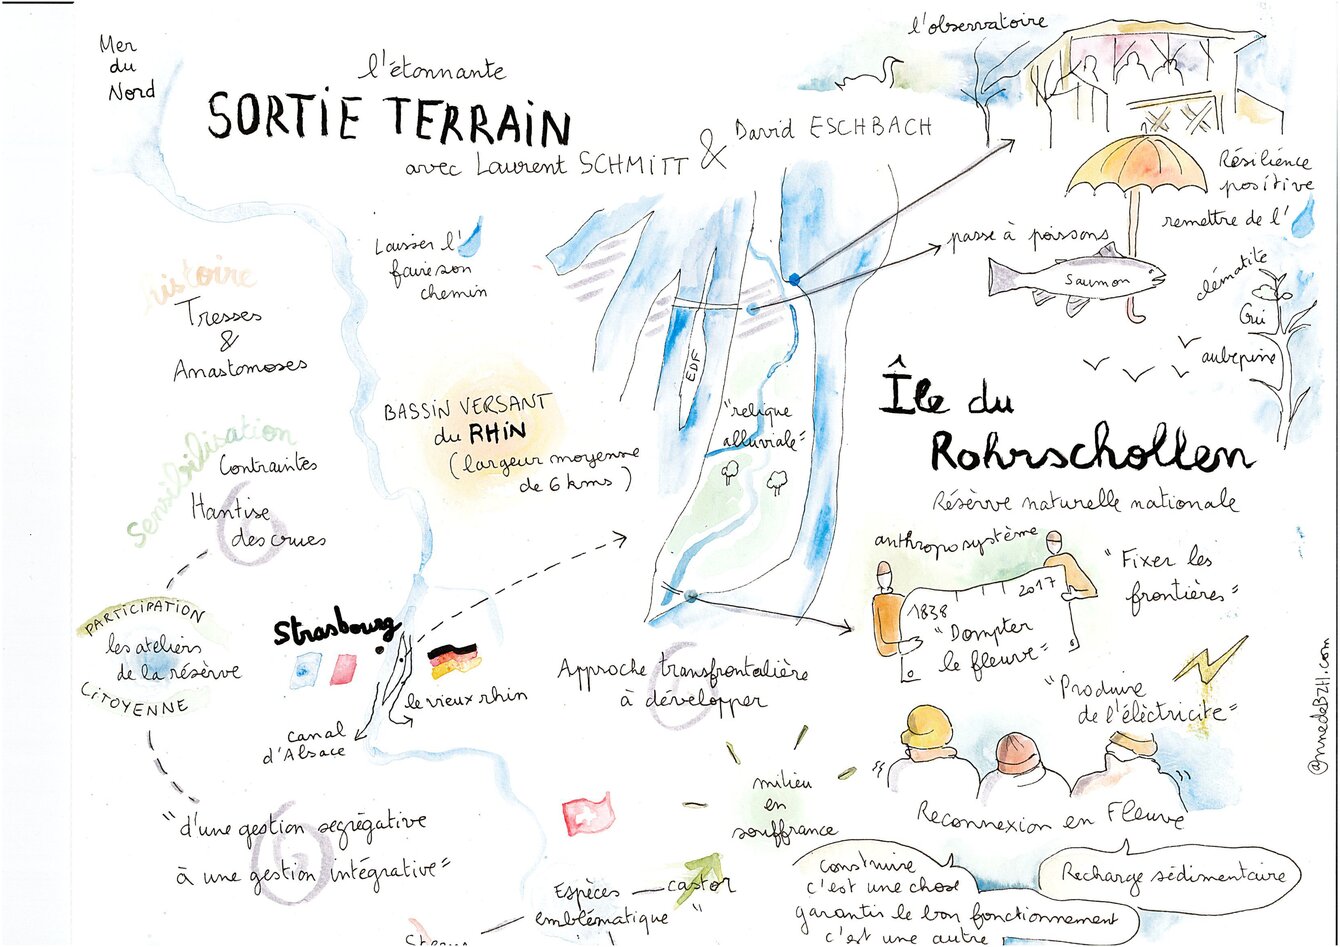 Mer
du
Nord
l'étonnante
SORTIE TERRAIN
avec Laurent SCHMITT & David ESCHBACH
l'observatoire
Résilience
positive
remettre de l'
passe à poissons
Saumon
clématite
Gui
aubépine
Laisser l'
faire son
chemin
histoire
Tresses
&
Anastomoses
Sensibilisation
Contraintes
Hantise
des crues
PARTICIPATION
les ateliers
de la réserve
CITOYENNE
"d'une gestion ségrégative
à une gestion intégrative"
BASSIN VERSANT
du RHIN
(largeur moyenne
de 6 kms)
EDF
"relique
alluviale"
Strasbourg
le vieux rhin
canal
d'Alsace
Approche transfrontalière
à développer
milieu
en
souffrance
Espèces
emblématique
castor
Île du
Rohrschollen
Résèrve naturelle nationale
anthroposystème
1838
2017
"Dompter
le fleuve"
"Fixer les
frontières"
"Produire
de l'éléctricité"
Reconnexion en Fleuve
Construire
c'est une chose
garantir le bon fonctionnement
c'est une autre
Recharge sédimentaire
@nnedeBZH.com